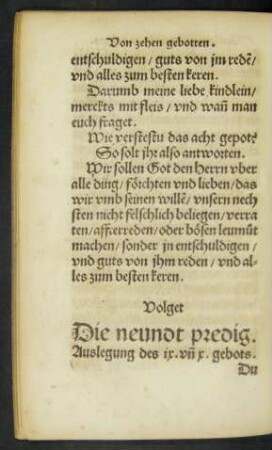 Von zehen gebotten.
entschuldigen / guts von jm redẽ /
vnd alles zum besten keren.
Darumb meine liebe kindlein /
merckts mit fleis / vnd wañ man
euch fraget.
Wie verstestu das acht gepot?
So solt jhr also antworten.
Wir sollen Got den herrn vber
alle ding / förchten vnd lieben / das
wir vmb seinen willẽ / vnsern nech
sten nicht felschlich beliegen / verra
ten / affterreden / oder bösen leumüt
machen / sonder jn entschuldigen /
vnd guts von jhm reden / vnd al-
les zum besten keren.
Volget
Die neundt predig.
Auslegung des ix. vñ x. gebots.
Du